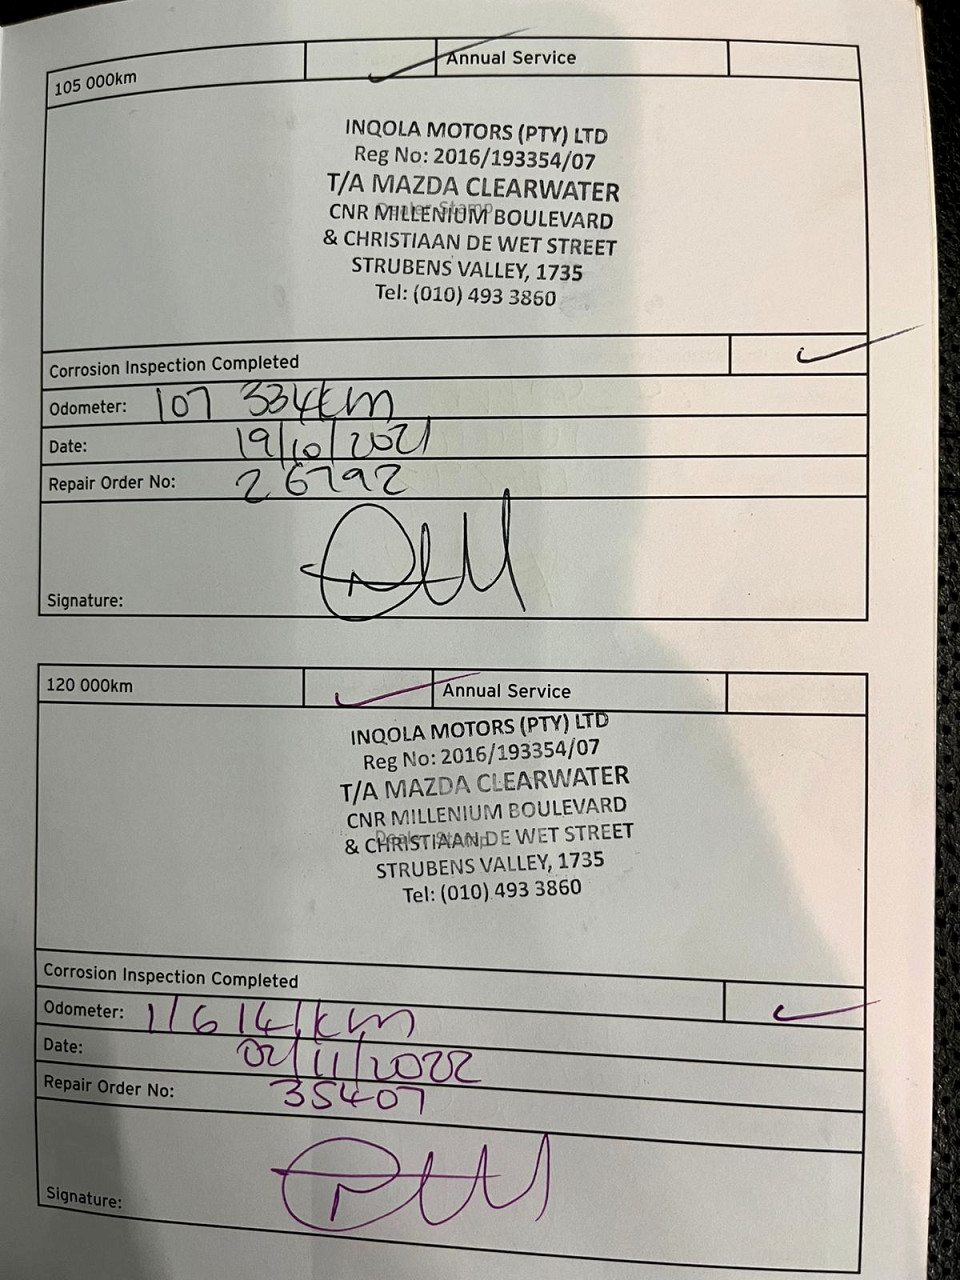 105 000km ✓ Annual Service
INQOLA MOTORS (PTY) LTD
Reg No: 2016/193354/07
T/A MAZDA CLEARWATER
Dealer Stamp
CNR MILLENIUM BOULEVARD
& CHRISTIAAN DE WET STREET
STRUBENS VALLEY, 1735
Tel: (010) 493 3860
Corrosion Inspection Completed ✓
Odometer: 107 334km
Date: 19/10/2021
Repair Order No: 26792
Signature:
120 000km ✓ Annual Service
INQOLA MOTORS (PTY) LTD
Reg No: 2016/193354/07
T/A MAZDA CLEARWATER
CNR MILLENIUM BOULEVARD
Dealer Stamp
& CHRISTIAAN DE WET STREET
STRUBENS VALLEY, 1735
Tel: (010) 493 3860
Corrosion Inspection Completed ✓
Odometer: 11614km
Date: 02/11/2022
Repair Order No: 35407
Signature: